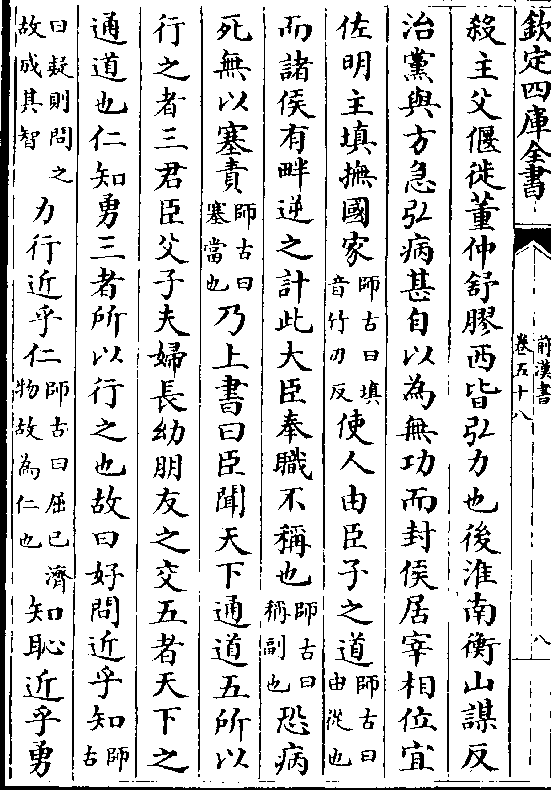 欽定四庫全書
前漢書
卷五十八
八
殺主父偃徙董仲舒膠西皆弘力也後淮南衡山謀反
治黨與方急弘病甚自以為無功而封侯居宰相位宜
佐明主填撫國家師古曰填音竹刃反使人由臣子之道師古曰由從也
而諸侯有畔逆之計此大臣奉職不稱也師古曰稱副也恐病
死無以塞責師古曰塞當也乃上書曰臣聞天下通道五所以
行之者三君臣父子夫婦長幼朋友之交五者天下之
通道也仁知勇三者所以行之也故曰好問近乎知師古
曰疑則問之故成其智力行近乎仁師古曰屈己濟物故為仁也知恥近乎勇